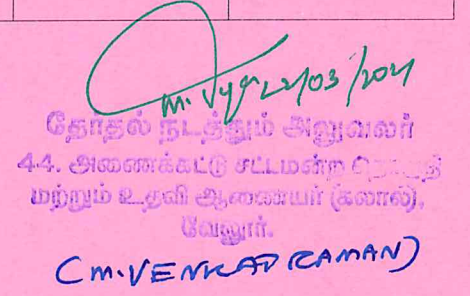 22/03/2021
தேர்தல் நடத்தும் அலுவலர்
44. அணைக்கட்டு சட்டமன்ற தொகுதி
மற்றும் உதவி ஆணையர் (கலால்),
வேலூர்.
(M.VENKADRAMAN)